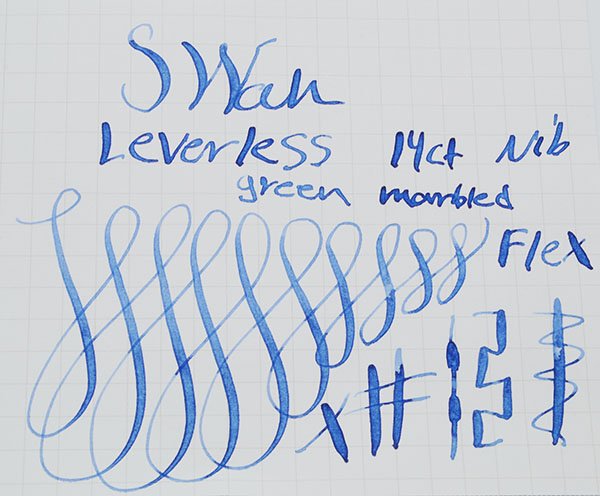 Swan
Leverless 14ct Nib
green marbled
Flex